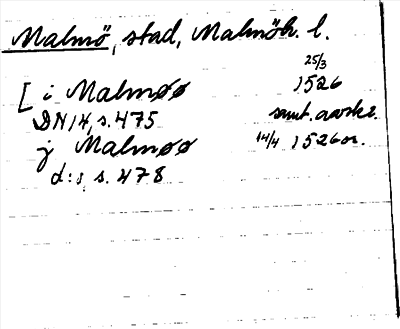 Malmö, stad, Malmöh. l.
25/3
[ i Malmøø 1526
DN 14, s. 475 samt. avskr.
j Malmøø 14/4 1526 or.
d:o s. 478